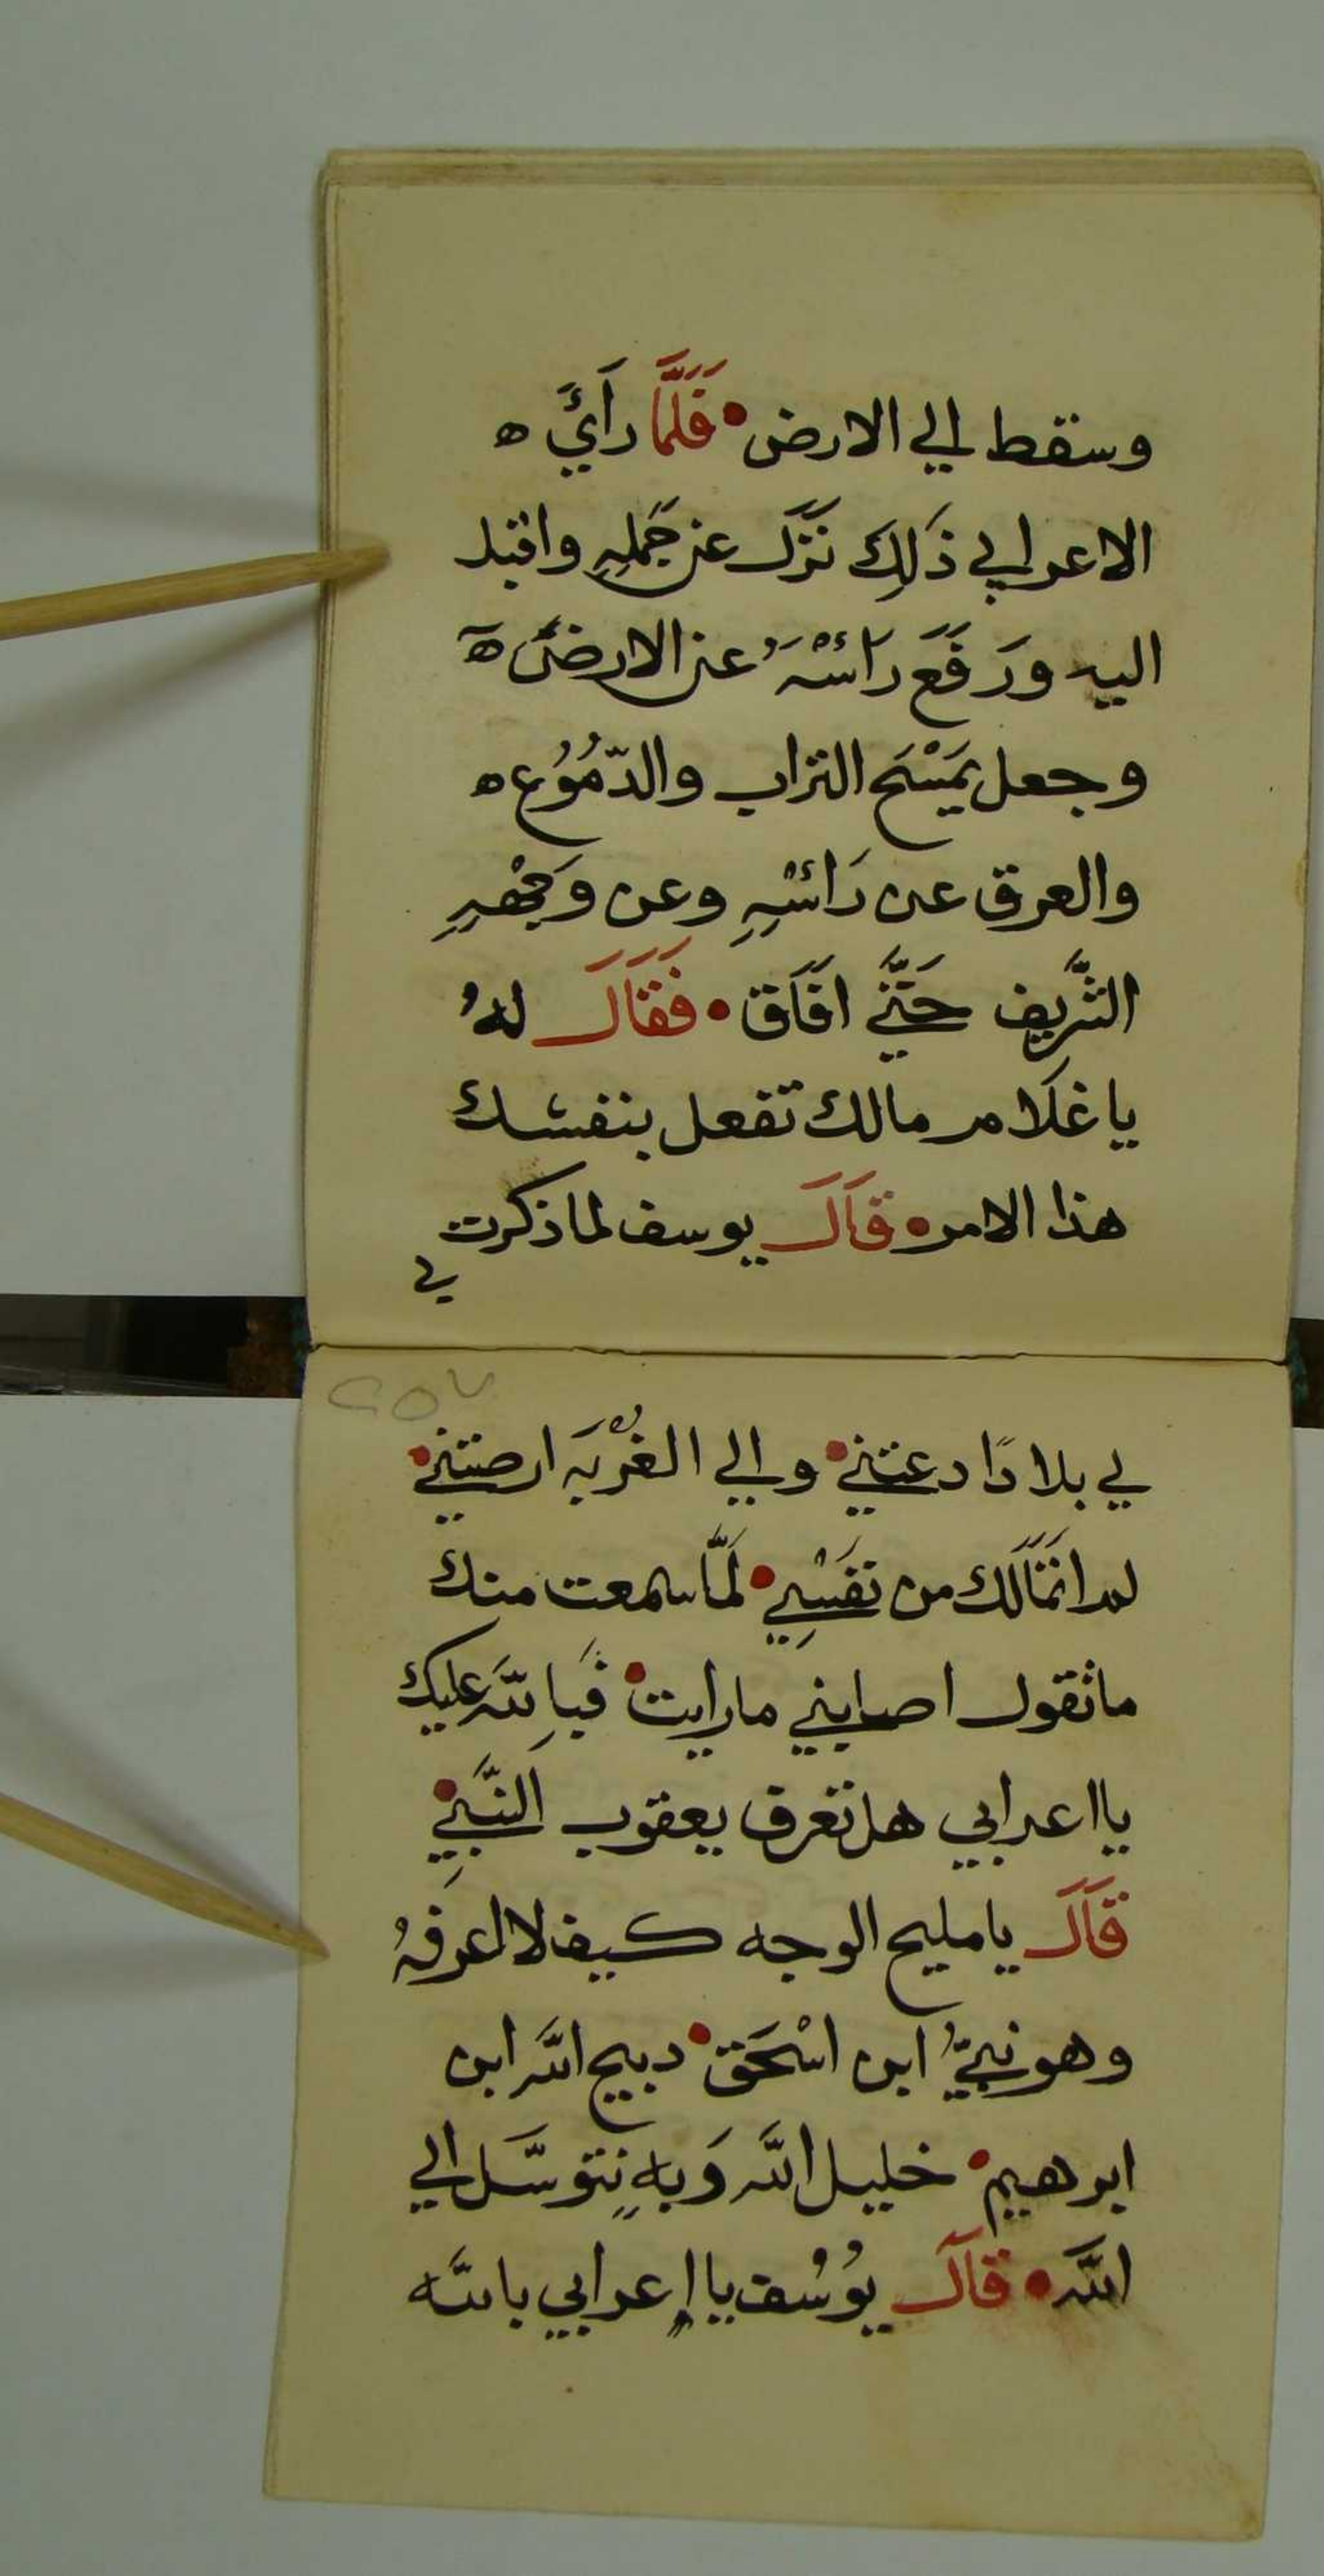 وسقط الي الارض • فَلَمَّا رَأيَ ه
الاعرابي ذَلِكَ نَزَلَ عن جَملِهِ واقبل
اليه ورَفَعَ رَائسْهَُ عن الارضَ ه
وجعل يَمْسَح التراب والدّمُوُع ه
والعرق عن رَائسْهِ وعن وَجْههِ
الشَّريف حَتَّي افَاَق • فَقَاَلَ لهُ
يا غَلَام مالك تفعل بنفسك
هذا الامر • قَاَلَ يوسف لما ذكرت
لي
٢٥٧
لي بلادًا دعتني • والي الغُرْبَه ارصتني •
لم اتمَالَك من نَفْسِي • لَمَّا سمعت منك
ما تقول اصابني ما رايت • فَبِاِللهَ عليك
يا اعرابي هل تعرف يعقوب النَّبَيِ •
قَاَلَ يا مليح الوجه كيف لا اعرفهُ
وهو نبيُّ ابن اسْحَق • دبيح اللَّه ابن
ابرهيم • خليل اللَّه وَبهِ نِتوسَّل الي
اللَّه • قَاَلَ يوُسُف يا إعرابي باللَّه